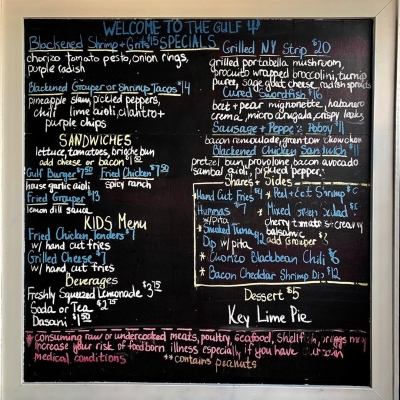 WELCOME TO THE GULF
SPECIALS
Blackened Shrimp + Grits $15
chorizo tomato pesto, onion rings,
purple radish
Blackened Grouper or Shrimp Tacos $14
pineapple slaw, pickled peppers,
chili lime aioli, cilantro +
purple chips
SANDWICHES
lettuce, tomatoes, brioche bun
add cheese or bacon $1.50
Gulf Burger $7.50 Fried Chicken $7.50
house garlic aioli spicy ranch
Fried Grouper $13
lemon dill sauce
KIDS Menu
Fried Chicken Tenders $7
w/ hand cut fries
Grilled Cheese $7
w/ hand cut fries
Beverages
Freshly Squeezed Lemonade $3
Soda or Tea $2.75
Dasani $1.50
Grilled NY Strip $20
grilled portabella mushroom,
procuito wrapped broccolini, turnip
puree, sage goat cheese, radish sprouts
Cured Swordfish $16
beet + pear mignonette, habanero
crema, micro arugula, crispy leeks
Sausage + Peppers Poboy $11
bacon remoulade,
Blackened Chicken Sandwich $11
pretzel bun, provolone, bacon avocado
sambal aioli, pickled pepper
Shares + Sides
* Hand Cut Fries $4
* Hummus $7
w/ pita
* Smoked Tuna $12
Dip w/ pita
* Peel + Eat Shrimp
* Mixed Green Salad
cherry tomato + creamy
balsamic
add Grouper
* Chorizo Blackbean Chili $6
* Bacon Cheddar Shrimp Dip $12
Dessert $5
Key Lime Pie
* consuming raw or undercooked meats, poultry, seafood, shellfish, eggs may
increase your risk of foodborn illness especially if you have certain
medical conditions
** contains peanuts